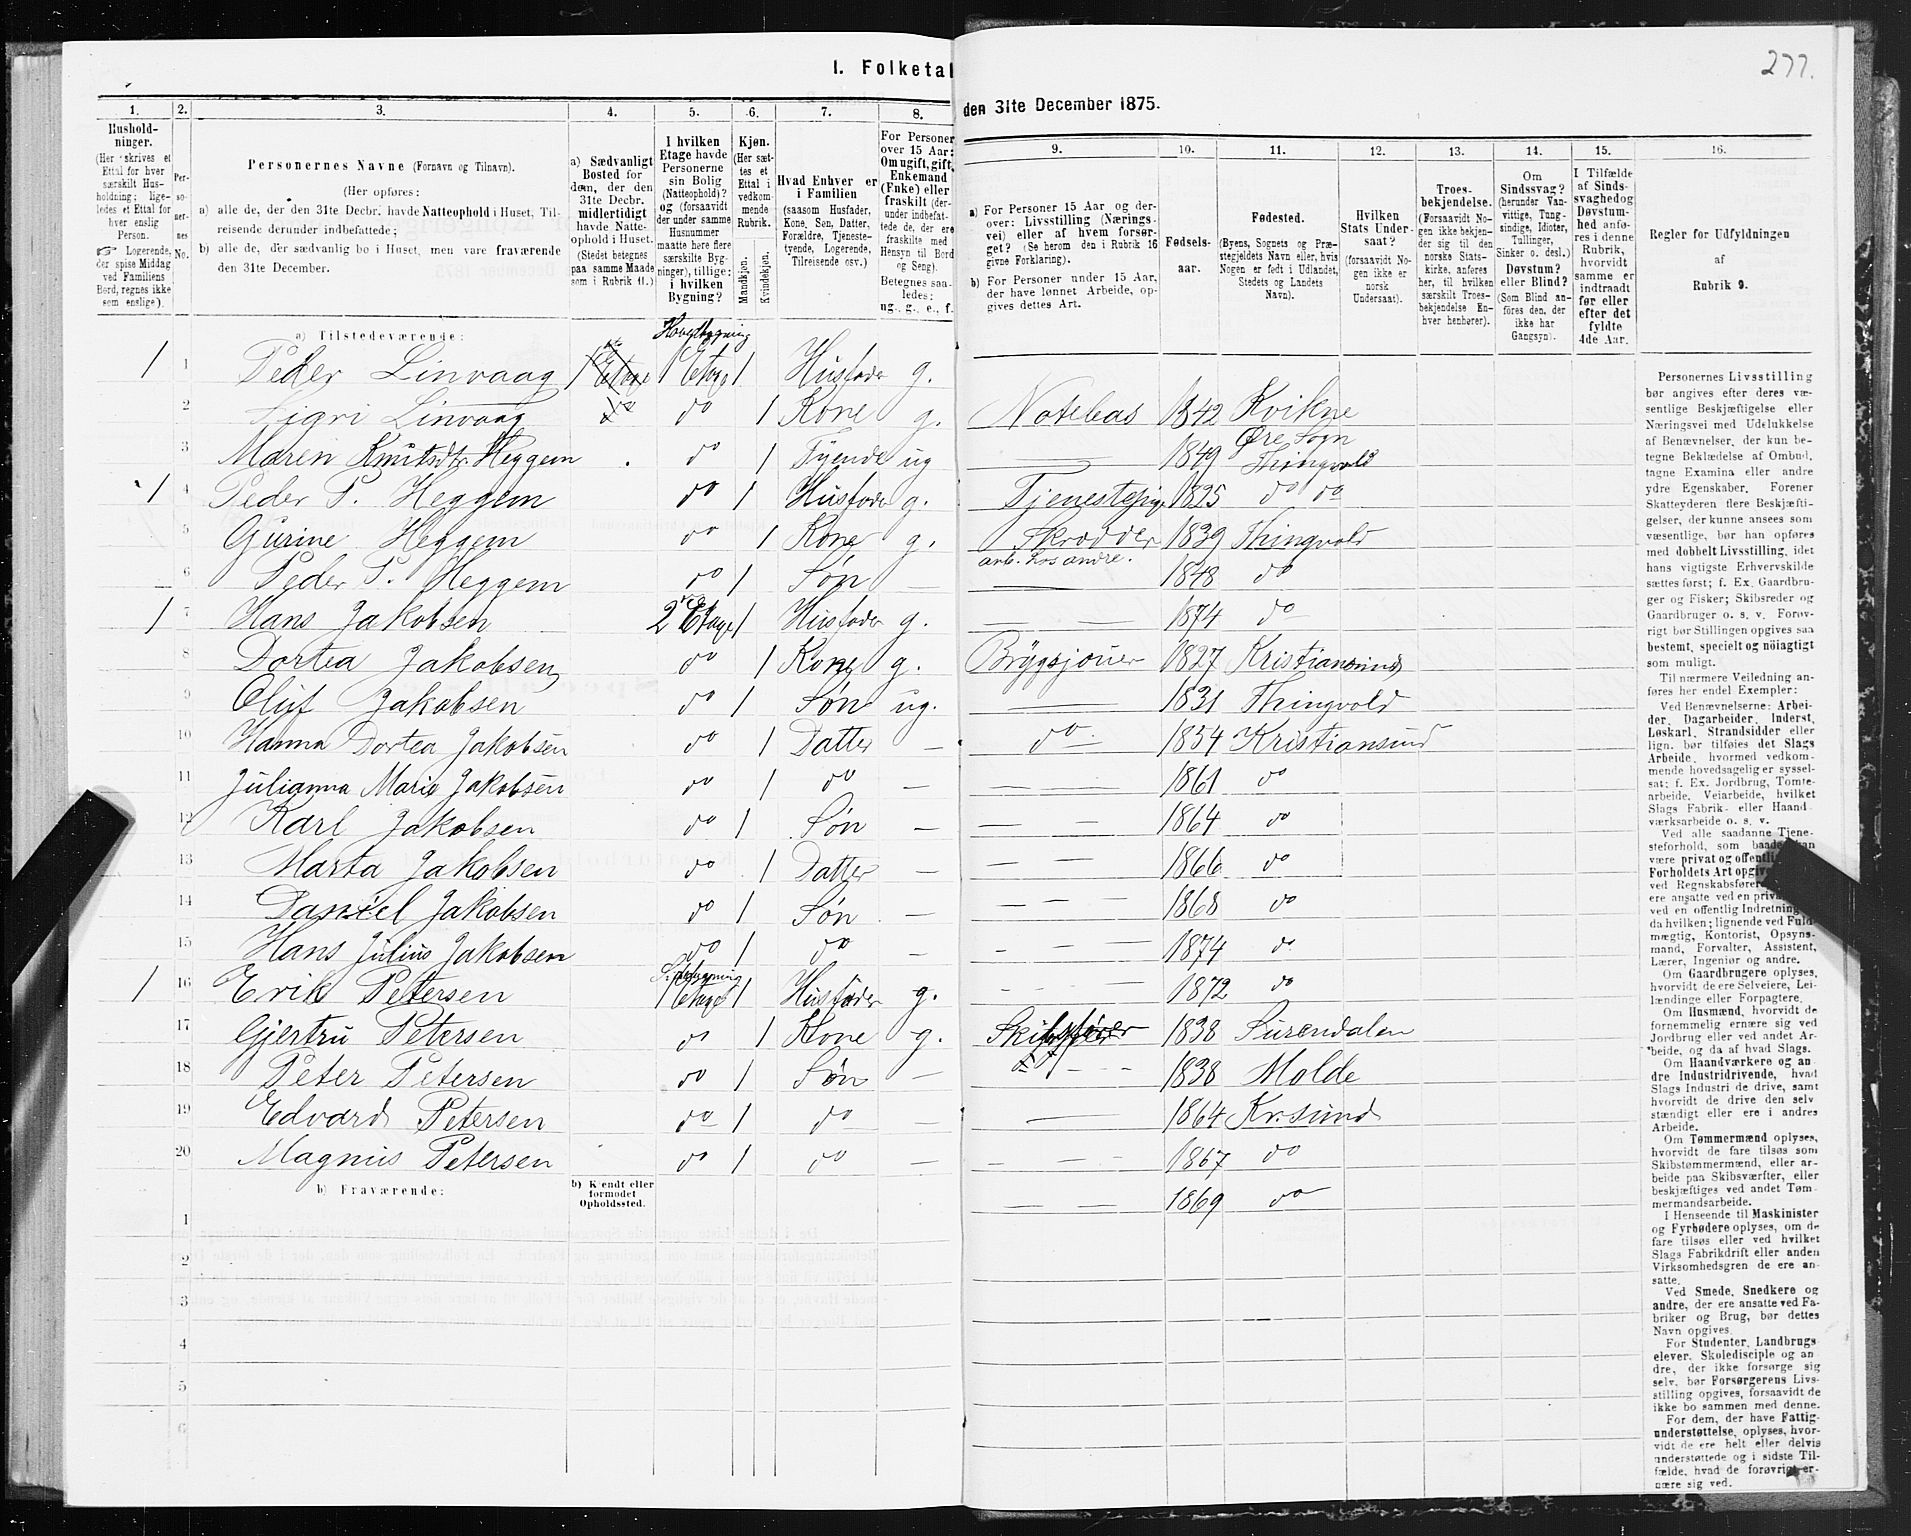 277.
I. Folketal
den 31te December 1875.
1. 2. 3. 4. 5. 6. 7. 8.
Hushold-
ninger.
(Her skrives et
Ettal for hver
særskilt Hus-
holdning; lige-
ledes et Ettal for
hver enslig
Person.
☞ Logerende,
der spise Middag
ved Familiens
Bord, regnes ikke
som enslige).
Per-
so-
ner-
nes
No.
Personernes Navne (Fornavn og Tilnavn).
(Her opføres:
a) alle de, der den 31te Decbr. havde Natteophold i Huset, Til-
reisende derunder indbefattede;
b) alle de, der sædvanlig bo i Huset, men vare fraværende
den 31te December.
a) Sædvanligt
Bosted for
dem, der den
31te Decbr.
midlertidigt
havde Natte-
ophold i Huset.
(Stedet betegnes
paa samme Maade
som i Rubrik 11.)
I hvilken
Etage havde
Personerne
sin Bolig
(Natteophold)?
og (forsaavidt
der under samme
Husnummer
maatte være flere
særskilte Byg-
ninger), tillige:
i hvilken
Bygning?
Kjøn.
(Her sæt-
tes et
Ettal i
vedkom-
mende
Rubrik.)
Mandkjøn.
Kvindekjøn.
Hvad Enhver er
i Familien
(saasom Husfader,
Kone, Søn, Datter,
Forældre, Tjeneste-
tyende, Logerende,
Tilreisende osv.)
For Personer
over 15 Aar:
Om ugift, gift,
Enkemand
(Enke) eller
fraskilt (der-
under indbefat-
tede de, der ere
fraskilte med
Hensyn til Bord
og Seng).
Betegnes saa-
ledes:
ug., g., e., f.
a) Tilstedeværende:
Hovedbygning
1 1 Peder Linvaag 1 Etage 1 Etage 1 Husfader g.
2 Sigri Linvaag do do 1 Kone g.
3 Maren Knutsdtr Heggem do 1 Tyende ug
1 4 Peder P. Heggem do 1 Husfader g.
5 Gurine Heggem do 1 Kone g.
6 Peder P. Heggem do 1 Søn —
1 7 Hans Jakobsen 2 Etage 1 Husfader g.
8 Dortea Jakobsen do 1 Kone g.
9 Oluf Jakobsen do 1 Søn ug.
10 Hanna Dortea Jakobsen do 1 Datter —
11 Julianna Marie Jakobsen do 1 do —
12 Karl Jakobsen do 1 Søn —
13 Marta Jakobsen do 1 Datter —
14 Daniel Jakobsen do 1 Søn —
15 Hans Julius Jakobsen do 1 do —
Sidebygning
1 16 Erik Petersen 1 Etage 1 Husfader g.
17 Gjertru Petersen do 1 Kone g.
18 Peter Petersen do 1 Søn —
19 Edvard Petersen do 1 do —
20 Magnus Petersen do 1 do —
b) Fraværende:
b) Kjendt eller
formodet
Opholdssted.
1
2
3
4
5
6
9. 10. 11. 12. 13. 14. 15. 16.
a) For Personer 15 Aar og der-
over: Livsstilling (Nærings-
vei) eller af hvem forsør-
get? (Se herom den i Rubrik 16
givne Forklaring).
b) For Personer under 15 Aar,
der have lønnet Arbeide, op-
gives dettes Art.
Fødsels-
aar.
Fødested.
(Byens, Sognets og Præ-
stegjeldets Navn eller, hvis
Nogen er født i Udlandet,
Stedets og Landets
Navn).
Hvilken
Stats Under-
saat?
(forsaavidt No-
gen ikke er
norsk
Undersaat).
Troes-
bekjendelse.
(Forsaavidt No-
gen ikke bekjen-
der sig til den
norske Stats-
kirke, anføres
her, til hvilken
særskilt Troes-
bekjendelse En-
hver henhører).
Om
Sindssvag?
(herunder Van-
vittige, Tung-
sindige, Idioter,
Tullinger,
Sinker o. desl.)
Døvstum?
eller Blind?
(Som Blind an-
føres den, der
ikke har
Gangsyn).
I Tilfælde
af Sinds-
svaghed og
Døvstum-
hed anfø-
res i denne
Rubrik,
hvorvidt
samme er
indtraadt
før eller
efter det
fyldte
4de Aar.
Regler for Udfyldningen
af
Rubrik 9.
Notebas 1842 Kvikne
— 1849 Øre Sogn Thingvold
Tjenestepige 1825 do do
Skrædder 1839 Thingvold
arb. hos andre.
— 1848 do
— 1874 do
Brygsjouer 1827 Kristiansund
— 1831 Thingvold
do 1854 Kristiansund
— — — 1861 do
— — — 1864 do
— — — 1866 do
— — — 1868 do
— — — 1874 do
- - - 1872 do
Skibsfører 1838 Surendalen
do - - 1838 Molde
— 1864 Kr.sund
- — — 1867 do
— — — 1869 do
Personernes Livsstilling
bør angives efter deres væ-
sentlige Beskjæftigelse eller
Næringsvei med Udelukkelse
af Benævnelser, der kun be-
tegne Beklædelse af Ombud,
tagne Examina eller andre
ydre Egenskaber. Forener
Skatteyderen flere Beskjæfti-
gelser, der kunne ansees som
væsentlige, bør han opføres
med dobbelt Livsstilling, idet
hans vigtigste Erhvervskilde
sættes først; f. Ex. Gaardbru-
ger og Fisker; Skibsreder og
Gaardbruger o. s. v. Forøv-
rigt bør Stillingen opgives saa
bestemt, specielt og nöiagtigt
som muligt.
Til nærmere Veiledning an-
føres her endel Exempler:
Ved Benævnelserne: Arbei-
der, Dagarbeider, Inderst,
Løskarl, Strandsidder eller
lign. bør tilføies det Slags
Arbeide, hvormed vedkom-
mende hovedsagelig er syssel-
sat; f. Ex. Jordbrug, Tomte-
arbeide, Veiarbeide, hvilket
Slags Fabrik- eller Haand-
værksarbeide o. s. v.
Ved alle saadanne Tjene-
steforhold, som baade kan
være privat og offentli
Forholdets Art opgive
ved Regnskabsføre
ere ansatte ved en priva
ved en offentlig Indretning
da hvilken; lignende ved Fuld-
mægtig, Kontorist, Opsyns-
mand, Forvalter, Assistent,
Lærer, Ingeniør og andre.
Om Gaardbrugere oplyses,
hvorvidt de ere Selveiere, Lei-
lændinge eller Forpagtere.
Om Husmænd, hvorvidt de
fornemmelig ernære sig ved
Jordbrug eller ved andet Ar-
beide, og da af hvad Slags.
Om Haandværkere og an-
dre Industridrivende, hvad
Slags Industri de drive, samt
hvorvidt de drive den selv-
stændigt eller ere i andres
Arbeide.
Om Tømmermænd oplyses,
hvorvidt de fare tilsøs som
Skibstømmermænd, eller ar-
beide paa Skibsværfter, eller
beskjæftiges ved andet Tøm-
mermandsarbeide.
I Henseende til Maskinister
og Fyrbødere oplyses, om de
fare tilsøs eller ved hvilket
Slags Fabrikdrift eller anden
Virksomhedsgren de ere an-
satte.
Ved Smede, Snedkere og
andre, der ere ansatte ved Fa-
briker og Brug, bør dettes
Navn opgives.
For Studenter, Landbrugs-
elever, Skoledisciple og an
dre, der ikke forsørge sig
selv, bør Forsørgerens Livs-
stilling opgives, forsaavidt de
ikke bo sammen med denne.
For dem, der have Fattig-
understøttelse, oplyses, hvor-
vidt de ere helt eller delvis
understøttede og i sidste Til-
fælde, hvad de forøvrigt er-
nære sig ved.